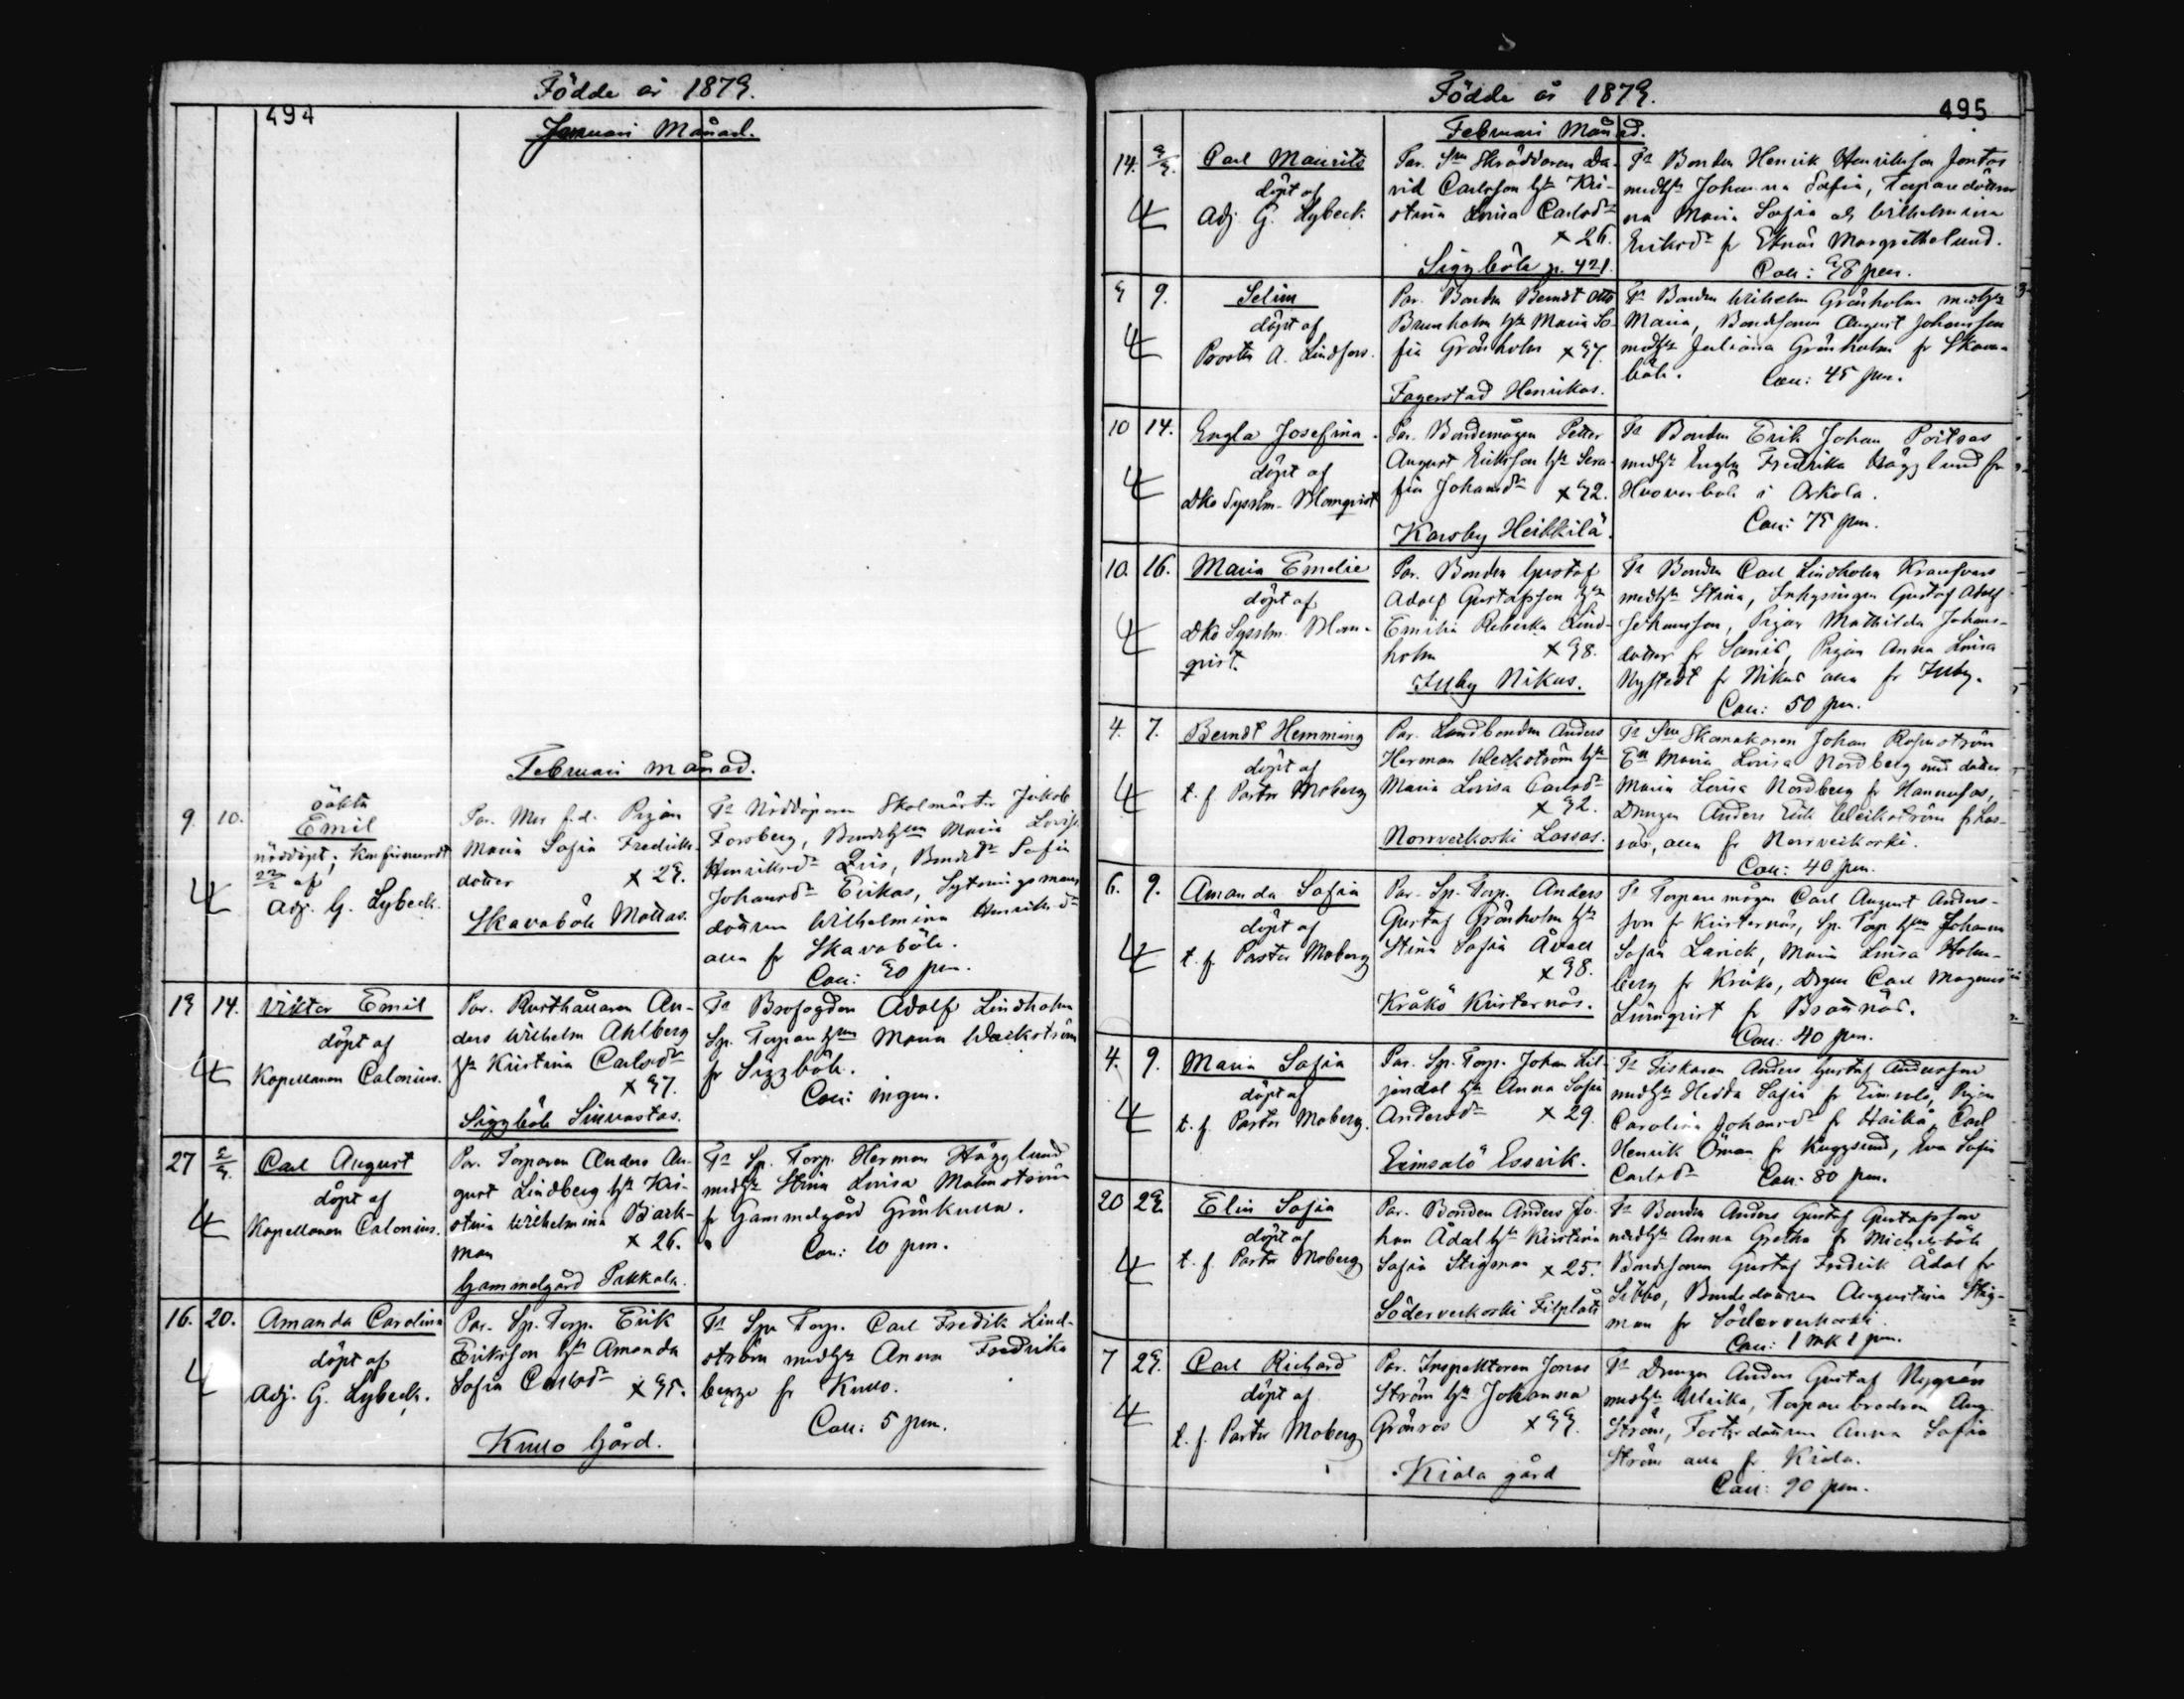 Födde år 1879.
494
Januari Månad.
Februari månad.
9. 10.
oäkta
Emil
nöddöpt; konfirmeradt
22/2 af
Adj. G. Lybeck.
Par. Mor f.d. Pigan
Maria Sofia Fredriks-
dotter × 23.
Skavaböle Mattas.
Ts Nöddöparen Skolmäster Jakob
Forsberg, Bondehun Maria Lovisa
Henriksdr Qvis, Bondedr Sofia
Johansdr Erikas, Sytningsmans
dottren Wilhelmina Henriksdr
alla fr Skavaböle.
Coll: 30 pen.
13 14.
Viktor Emil
döpt af
Kapellanen Calonius.
Par. Rusthållaren An-
ders Wilhelm Ahlberg
hu Kristina Carlsdr
× 37.
Siggböle Simmastas.
Ts Brofogden Adolf Lindholm
Sp. Torpare hun Maria Weckström
fr Siggböle.
Coll: ingen.
27 2/3.
Carl August
döpt af
Kapellanen Calonius.
Par. Torparen Anders Au-
gust Lindberg hu Kri-
stina Wilhelmina Back-
man × 26.
Gammelgård Pakkala.
Ts Sp. Torp. Herman Hägglund
med hu Stina Lovisa Malmström
fr Gammelgård Grönkulla.
Coll: 10 pen.
16. 20.
Amanda Carolina
döpt af
Adj. G. Lybeck.
Par. Sp. Torp. Erik
Eriksson hu Amanda
Sofia Carlsdr × 35.
Kullo Gård.
Ts Sp. Torp. Carl Fredrik Lind-
ström med hu Anna Fredrika
Berge fr Kullo.
Coll: 5 pen.
Födde år 1879.
495
Februari Månad.
14. 2/3.
Carl Maurits
döpt af
Adj. G. Lybeck.
Par. Sn Skräddaren Da-
vid Carlsson hu Kri-
stina Lovisa Carlsdr
× 26.
Siggböle p. 421.
Ts Bonden Henrik Henriksson Jontas
med hu Johanna Sofia, Torparedöttrar
na Maria Sofia och Wilhelmina
Eriksdr fr Eknäs Margrethelund.
Coll: 38 pen.
3 9.
Selim
döpt af
Prosten A. Lindfors.
Par. Bonden Berndt Otto
Brunholm hu Maria So-
fia Grönholm × 37.
Fagerstad Henrikas.
Ts Bonden Wilhelm Grönholm med hu
Maria, Bondsonen August Johansson
med hu Juliana Grönholm fr Skava-
böle. Coll: 45 pen.
10 14.
Engla Josefina.
döpt af
dko Sysslm. Blomqvist
Par. Bondemågen Petter
August Eriksson hu Sera-
fia Johansdr × 32.
Karsby Heikkilä.
Ts Bonden Erik Johan Poitsas
med hu Engla Fredrika Hägglund fr
i Askola.
Coll: 75 pen.
10. 16.
Maria Emelie
döpt af
dko Sysslm. Blom-
qvist.
Par. Bonden Gustaf
Adolf Gustafsson hu
Emilia Rebecka Lind-
holm × 38.
Illby Nikus.
Ts Bonden Carl Lindholm
med hu Stina, Inhysingen Gustaf Adolf
Johansson, Pigan Mathilda Johans-
dotter fr Sannäs, Pigan Anna Lovisa
Nystedt fr Nikus alla fr Illby.
Coll: 50 pen.
4. 7.
Berndt Hemming
döpt af
t. f. Pastor Moberg
Par. Landbonden Anders
Herman Weckström hu
Maria Lovisa Carlsdr
× 32.
Norrveckoski Lassas.
Ts Sn Skomakaren Johan Rosenström
En Maria Lovisa Nordberg med dotter
Maria Lovisa Nordberg fr Hannusas,
Drengen Anders Erik Weckström fr Las-
sas, alla fr Norrveckoski.
Coll: 40 pen.
6. 9.
Amanda Sofia
döpt af
t. f. Pastor Moberg
Par. Sp. Torp. Anders
Gustaf Grönholm hu
Stina Sofia Åvall
× 38.
Kråkö Kristernäs.
Ts Torparemågen Carl August Anders-
son fr Kristernäs, Sp. Torp hun Johanna
Sofia Larick, Maria Lovisa Holm-
berg fr Kråkö, Drgen Carl Magnus
Lurnqvist fr Brännäs.
Coll: 40 pen.
4. 9.
Maria Sofia
döpt af
t. f. Pastor Moberg.
Par. Sp. Torp. Johan Lil-
jendal hu Anna Sofia
Andersdr × 29
Eimsalö Essvik.
Ts Fiskaren Anders Gustaf Andersson
med hu Hedda Sofia fr Eimsalö, Pigan
Carolina Johansdr fr Haikå, Carl
Henrik Öman fr Kuggsund, Eva Sofia
Carlsdr Coll: 80 pen.
20 23
Elin Sofia
döpt af
t. f. Pastor Moberg
Par. Bonden Anders Jo-
han Ådal hu Kristina
Sofia Stigman × 25.
Söderveckoski Filpåtti
Ts Bonden Anders Gustaf Gustafsson
med hu Anna Gretha fr Mickelsböle
Bondsonen Gustaf Fredrik Ådal fr
Sibbo, Bondedottren Augustina Stig-
man fr Söderveckoski.
Coll: 1 mk 1 pen.
7 23.
Carl Richard
döpt af
t. f. Pastor Moberg
Par. Inspektoren Jonas
Ström hu Johanna
Grönros × 33.
Kiala gård
Ts Drengen Anders Gustaf Nygrén
med hu Ulrika, Torparebrodren Aug.
Ström, Fosterdottren Anna Sofia
Ström alla fr Kiala.
Coll: 90 pen.